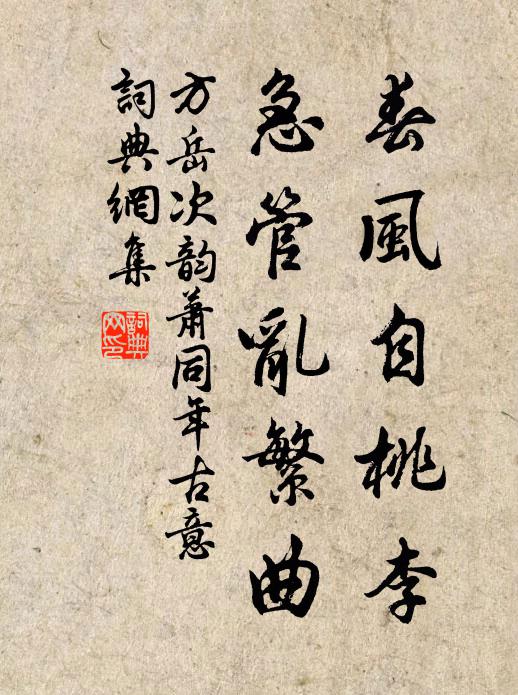 春風自桃李
急管亂繁曲
方岳次韵蕭同年古意
詞典網集
詞典
网印